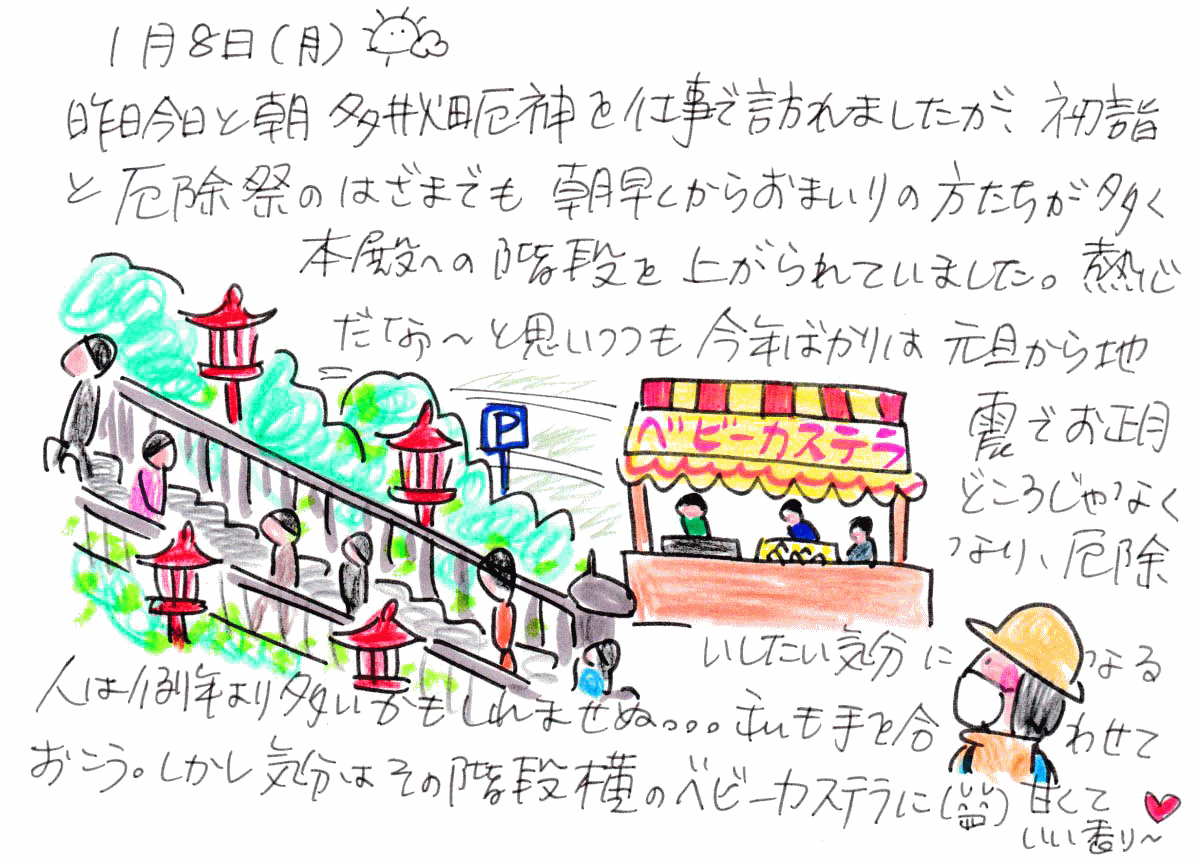 1月8日(月)
昨日今日と朝 多井畑厄神を仕事で訪れましたが、初詣
と厄除祭のはざまでも 朝早くからおまいりの方たちが多く
本殿への階段を上がられていました。熱心
だなぁ〜と思いつつも 今年ばかりは 元旦から地
震でお正月
どころじゃなく
なり、厄除
いしたい気分になる
人は例年より多いかもしれませぬ。。。私も手を合わせて
おこう。しかし気分はその階段横のベビーカステラに( ) 甘くて
いい香り〜
P
ベビーカステラ